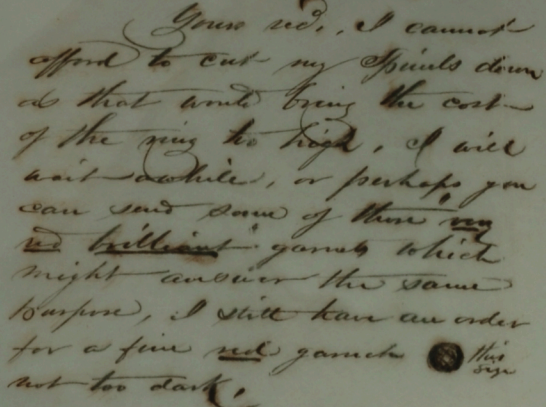 Yours recd, I cannot
afford to cut my Spinels down
as that would bring the cost
of the ring too high, I will
wait awhile, or perhaps you
can send some of those "very
red brilliant" garnets which
might answer the same
purpose, I still have an order
for a fine red garnet this size
not too dark,